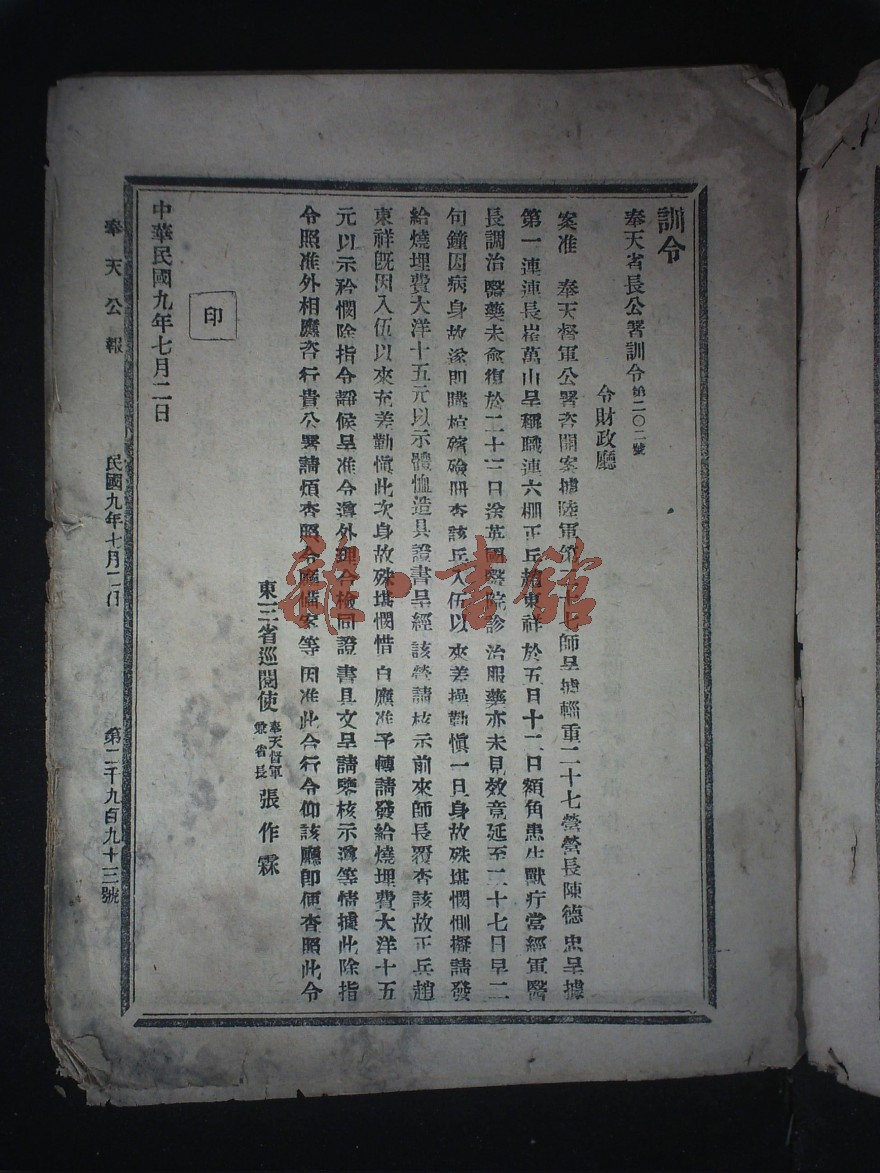 訓令
奉天省長公署訓令第二〇二號
令財政廳
案准 奉天督軍公署咨開案據陸軍第二十七師呈據輜重二十七營營長陳德忠呈據
第一連連長崔萬山呈稱職連六棚正兵趙東祥於五日十二日額角患生獸疔當經軍醫
長調治醫藥未愈復於二十三日送英國醫院診治服藥亦未見效竟延至二十七日早二
句鐘因病身故遂即購棺殯殮毌查該兵入伍以來差操勤慎一旦身故殊堪憫惻擬請發
給燒埋費大洋十五元以示體恤造具證書呈經該營請核示前來師長覆查該故正兵趙
東祥旣因入伍以來充差勤愼此次身故殊堪憫惜自應准予轉請發給燒埋費大洋十五
元以示矜憫除指令靜候呈准令遵外理合檢同證書具文呈請鑒核示遵等情據此除指
令照准外相應咨行貴公署請煩查照令廳備案等因准此合行令仰該廳即便查照此令
東三省巡閱使奉天督軍兼省長張作霖
印
中華民國九年七月二日
奉天公報 民國九年七月二日 第二千九百九十三號
雜·書館